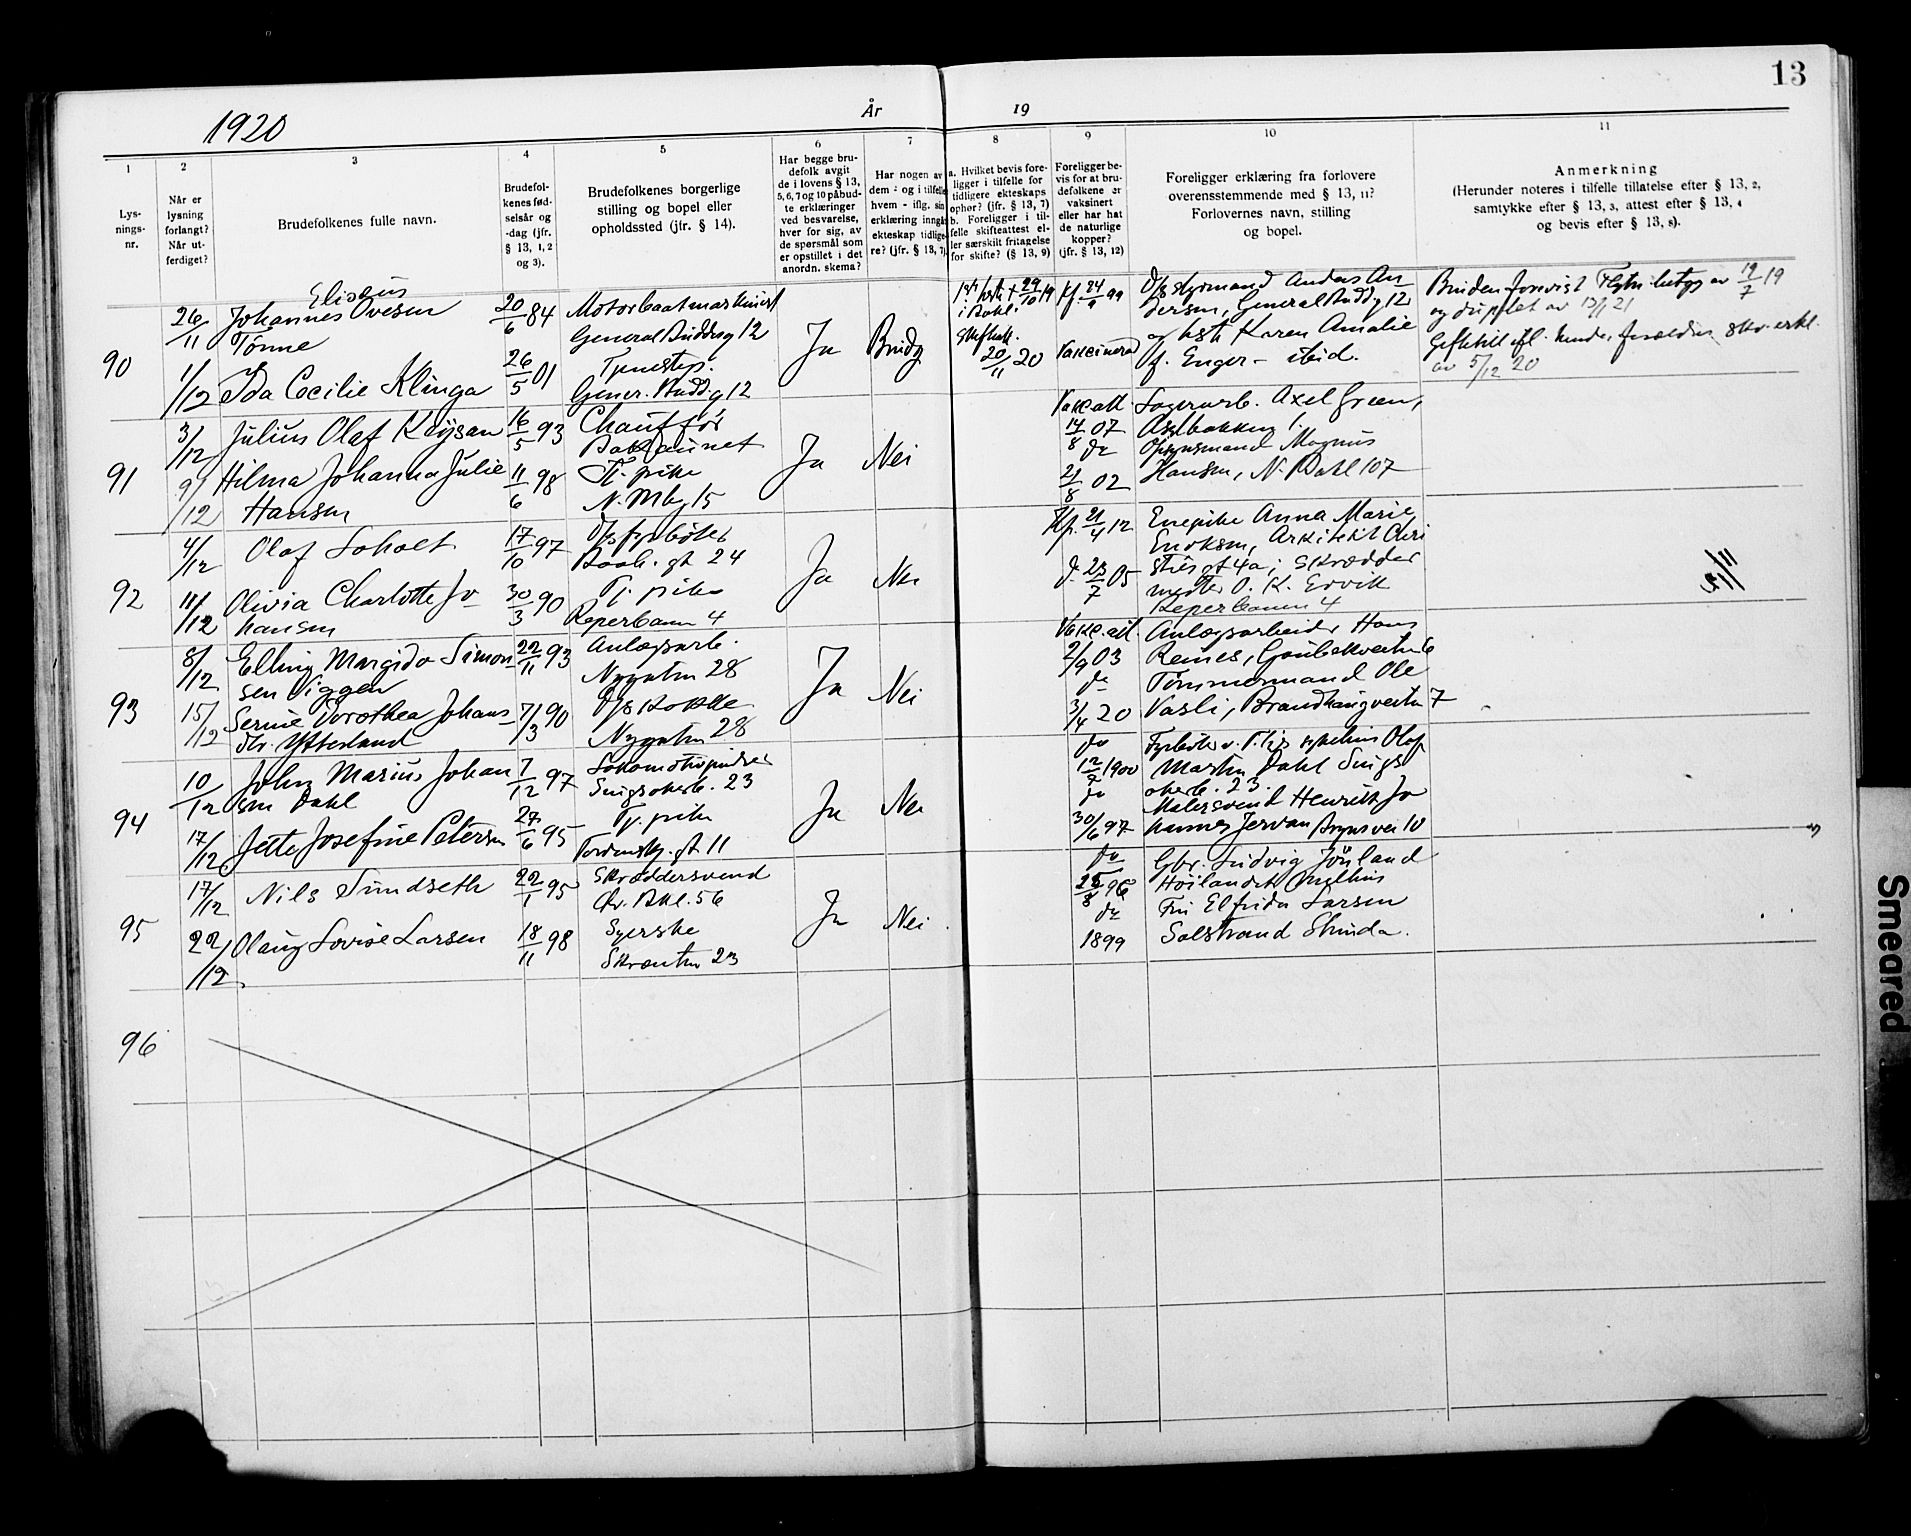 13
1920
År
19
1
2
3
4
5
6
7
8
9
10
11
Lys-
nings-
nr.
Når er
lysning
forlangt?
Når ut-
ferdiget?
Brudefolkenes fulle navn.
Brudefol-
kenes fød-
selsår og
-dag (jfr.
§ 13, 1, 2
og 3).
Brudefolkenes borgerlige
stilling og bopel eller
opholdssted (jfr. § 14).
Har begge bru-
defolk avgit
de i lovens § 13,
5, 6, 7 og 10 påbud-
te erklæringer
ved besvarelse,
hver for sig, av
de spørsmål som
er opstillet i det
anordn. skema?
Har nogen av
dem : og i tilfelle
hvem - iflg. sin
erklæring inngåt
ekteskap tidlige-
re? (jfr. § 13, 7)
a. Hvilket bevis fore-
ligger i tilfelle for
tidligere ekteskaps
ophør? (jfr. § 13, 7)
b. Foreligger i til-
felle skifteattest el-
ler særskilt fritagelse
for skifte? (§ 13, 9)
Foreligger be-
vis for at bru-
defolkene er
vaksinert
eller har hat
de naturlige
kopper?
(jfr. § 13, 12)
Foreligger erklæring fra forlovere
overensstemmende med § 13, 11?
Forlovernes navn, stilling
og bopel.
Anmerkning
(Herunder noteres i tilfelle tillatelse efter § 13, 2,
samtykke efter § 13, 3, attest efter § 13, 4
og bevis efter § 13, 8).
90
26/11
1/12
Elisæus
Johannes Ovesen
Tønne
Ida Cecilie Klinga
20/6 84
26/5 01
Motorbaatmaskinist
General Buddsg 12
Tjenestep.
Gener. Budd.g 12
Ja
Brudg
29/10 19
20/11 20
Kf. 24/9 99
Vakcinered
D/s styrmand Anders An
dersen, General Budd.g 12
og hstr Karen Amalie
f. Enger - ibid.
Bruden forevist
av 19/7 19
av 5/12 20
91
3/12
9/12
Julius Olaf Keysan
Hilma Johanna Julie
Hansen
16/5 93
11/6 98
Chauffør
Bakklaunet
Tj. pike
N. Mbg 15
Ja
Nei
Vakc att.
14/8 07
do
21/8 02
Lagerarb. Axel Green,
Aslbakken 1.
Opsynsmand Magnus
Hansen, N. Bakl 107
92
4/12
11/12
Olaf Soholt
Olivia Charlotte Jo
hansen
17/10 97
30/3 90
D/s fyrbøter
Baab. gt 24
Tj. pike
Reperbanen 4
Ja
Nei
Kf. 21/4 12
d. 23/7 05
Enepike Anna Marie
Enoksen, Arkitekt Chri
sties gt 4a; Skrædder
mester O. K. Ervik
Reperbanen 4
93
8/12
15/12
Elling Margido Simon
sen Viggen
Serine Dorothea Johans
dtr. Ytterland
22/11 93
7/3 90
Anlægsarb.
Nygatn 28
D/s kokke
Nygatn 28
Ja
Nei
Vakc. att.
2/9 03
do
3/4 20
Anlægsarbeider Hans
Reines, Gaubekveitn 6
Tømmermand Ole
Vasli, Brandhaugveitn 7
94
10/12
17/12
John Marius Johan
sen Dahl
Jette Josefine Petersen
7/12 97
27/6 95
Lokomotivpudser
Singsakerb. 23
Tj. pike
Tordenskj. gt 11
Ja
Nei
do
12/7 1900
do
30/6 97
Martin Dahl Sings
akerb. 23.
Malersvend Henrik Jo
hannes Jervan Brynsvei 10
95
17/12
22/12
Nils Sundseth
Olaug Lovise Larsen
22/1 95
18/11 98
Skræddersvend
Ø. Bkl. 56
Syerske
Skrænten 23
Ja
Nei
do
25/8 96
do
1899
Gbr. Ludvig Jørland
Høilandet
Fru Elfrida Larsen
Solstrand Strinda.
96
Smeared